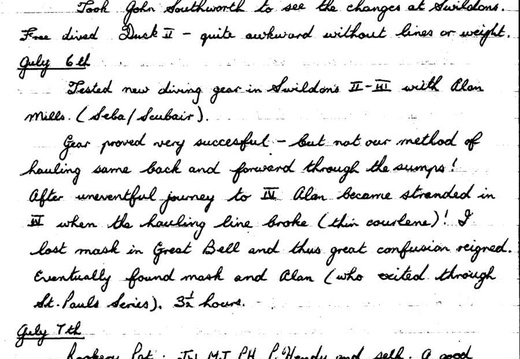 Took John Southworth to see the changes at Swildons.
Free dived Duck II - quite awkward without lines or weight.
July 6th
Tested new diving gear in Swildon's II-III with Alan
Mills. (Seba/Scubair).
Gear proved very succesful - but not our method of
hauling same back and forward through the sumps!
After uneventful journey to IV Alan became stranded in
III when the hauling line broke (thin courlene)! I
lost mask in Great Bell and thus great confusion reigned.
Eventually found mask and Alan (who exited through
St. Pauls Series). 3½ hours.
July 7th
Rookery Pot. JW MJ PH P. Hendy and self. A good